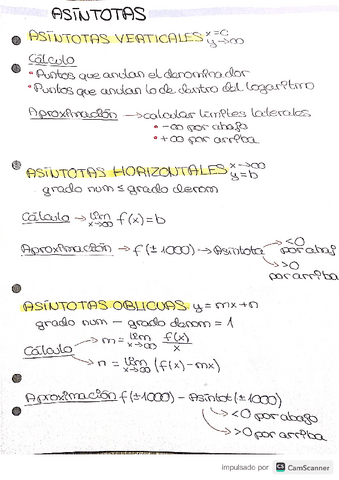 ASÍNTOTAS
ASÍNTOTAS VERTICALES x=c
y→∞
Cálculo
• Puntos que anulan el denominador
• Puntos que anulan lo de dentro del logaritmo
Aproximación → calcular límites laterales
• -∞ por abajo
• +∞ por arriba
ASÍNTOTAS HORIZONTALES x→∞
y=b
grado num ≤ grado denom
Cálculo → lím x→∞ f(x)=b
Aproximación → f(±1000) → Asíntota → <0 por abajo
→ >0 por arriba
ASÍNTOTAS OBLICUAS y=mx+n
grado num - grado denom = 1
Cálculo → m = lím x→∞ f(x)/x
→ n = lím x→∞ (f(x)-mx)
Aproximación f(±1000) - Asíntot(±1000)
→ <0 por abajo
→ >0 por arriba
impulsado por CS CamScanner